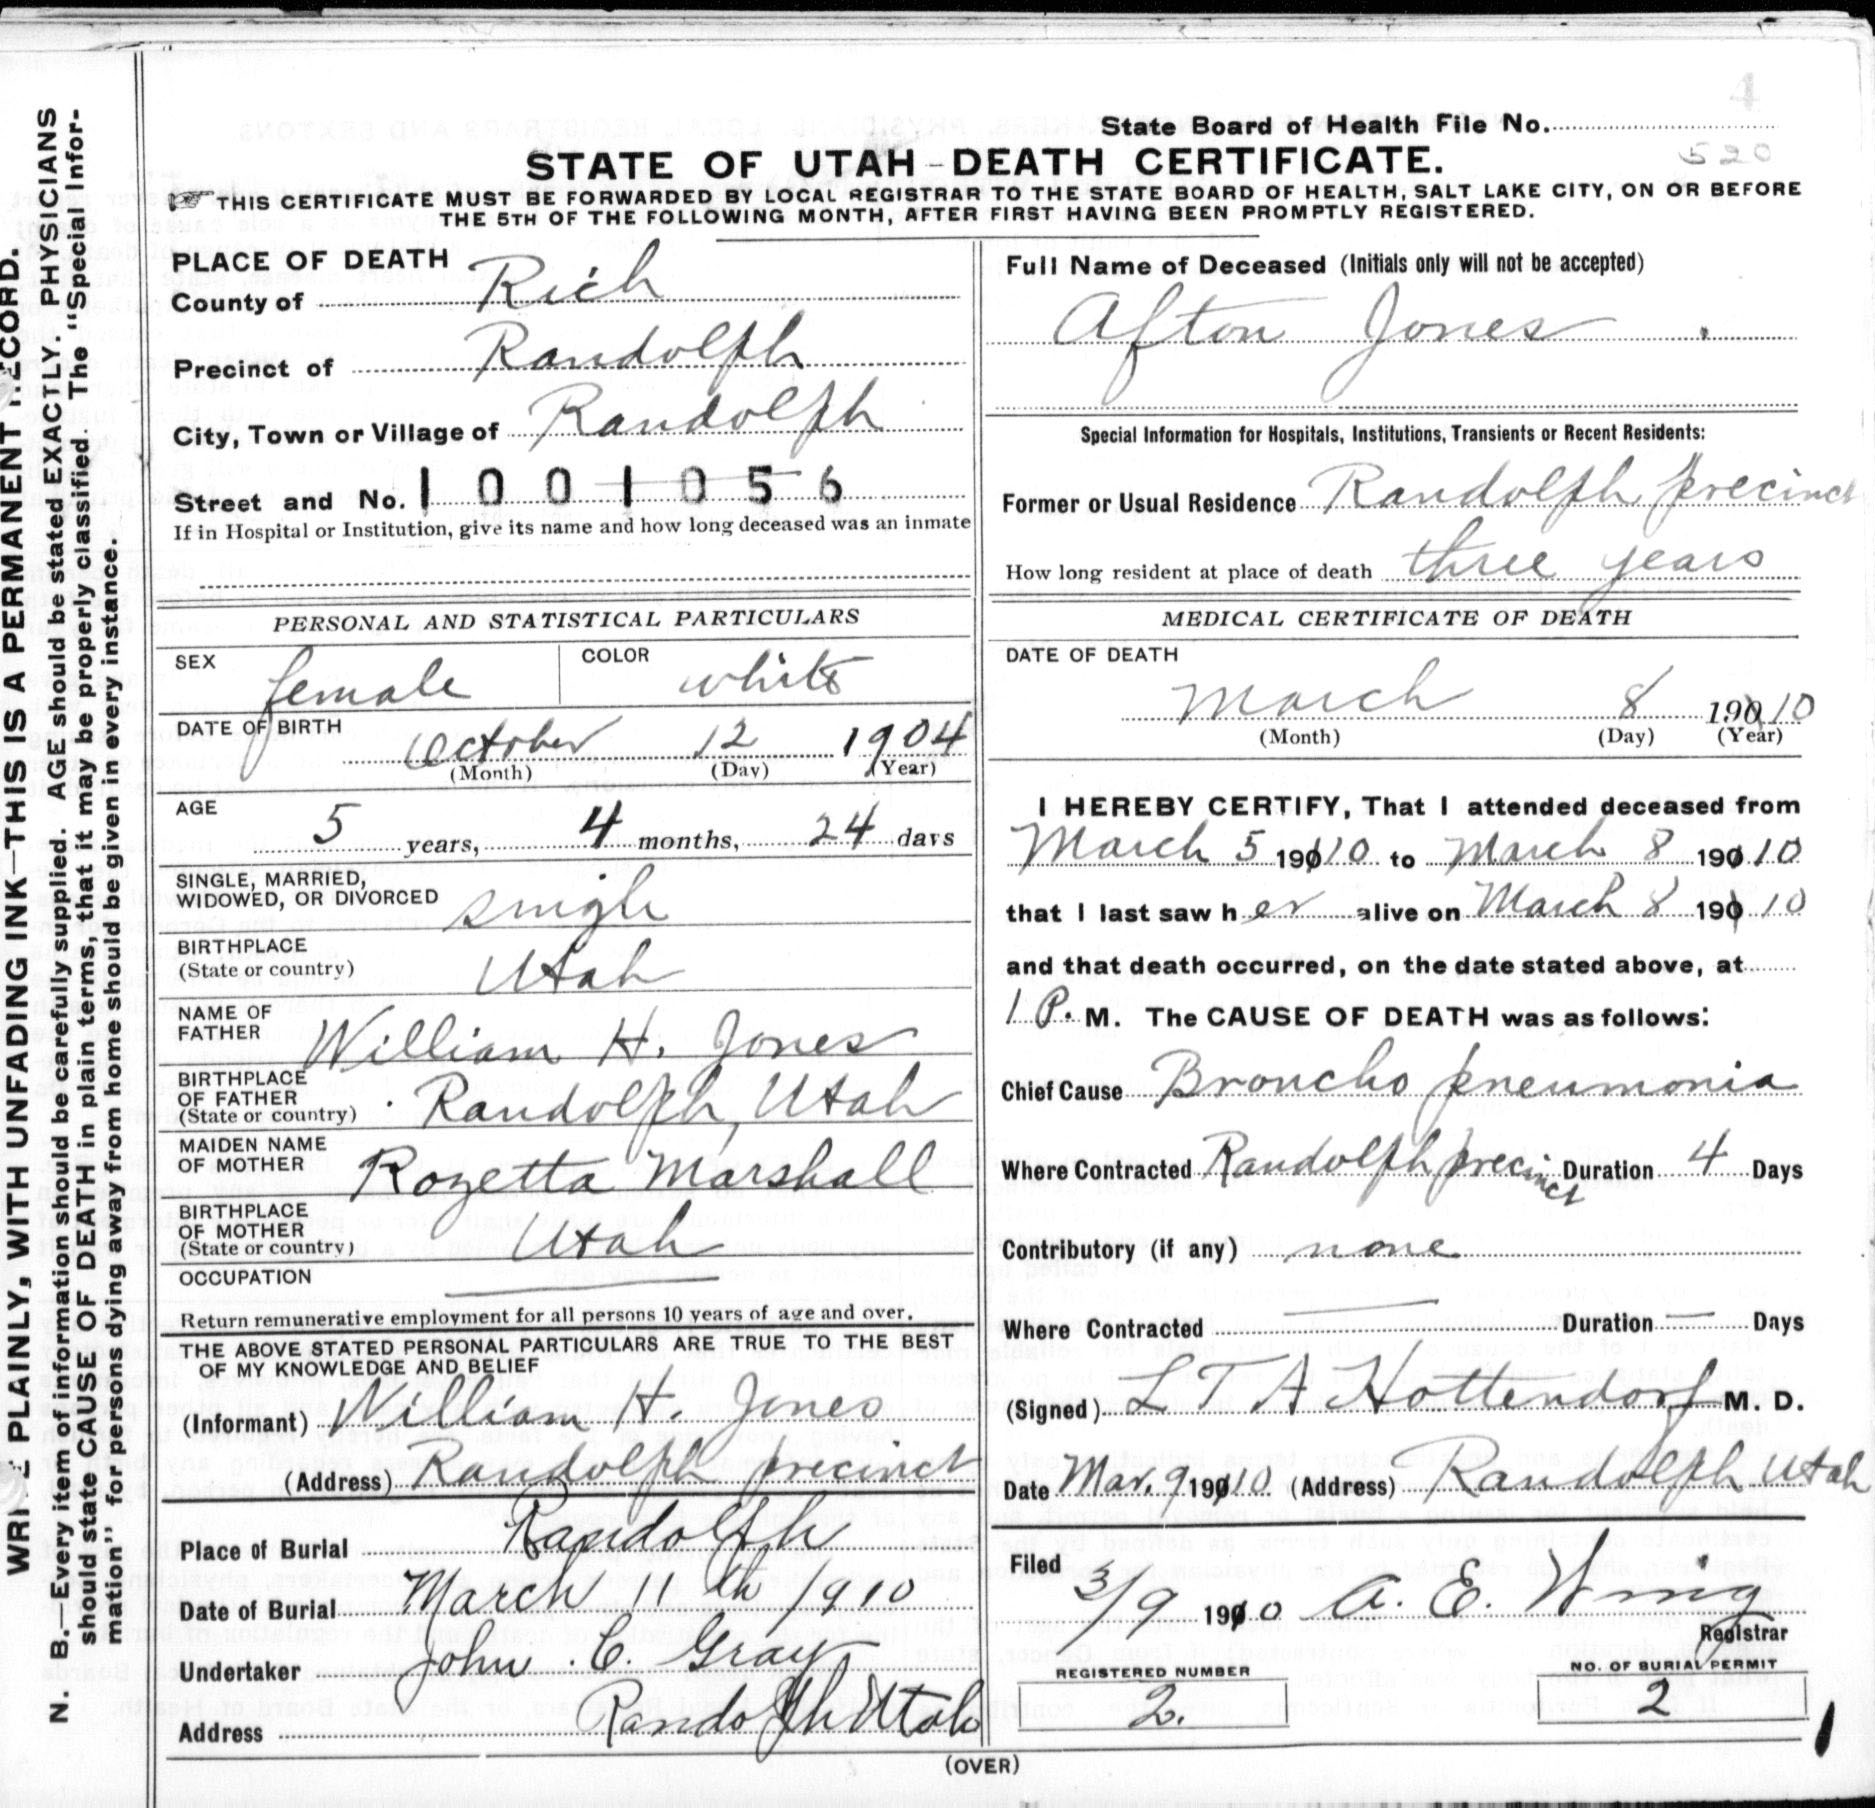 WRITE PLAINLY, WITH UNFADING INK—THIS IS A PERMANENT RECORD.
N. B.—Every item of information should be carefully supplied. AGE should be stated EXACTLY. PHYSICIANS
should state CAUSE OF DEATH in plain terms, that it may be properly classified. The "Special Infor-
mation" for persons dying away from home should be given in every instance.
4
State Board of Health File No.
520
STATE OF UTAH—DEATH CERTIFICATE.
☞ THIS CERTIFICATE MUST BE FORWARDED BY LOCAL REGISTRAR TO THE STATE BOARD OF HEALTH, SALT LAKE CITY, ON OR BEFORE
THE 5TH OF THE FOLLOWING MONTH, AFTER FIRST HAVING BEEN PROMPTLY REGISTERED.
PLACE OF DEATH
County of Rich
Precinct of Randolph
City, Town or Village of Randolph
Street and No. 1001056
If in Hospital or Institution, give its name and how long deceased was an inmate
PERSONAL AND STATISTICAL PARTICULARS
SEX female COLOR white
DATE OF BIRTH October 12 1904
(Month) (Day) (Year)
AGE
5 years, 4 months, 24 days
SINGLE, MARRIED,
WIDOWED, OR DIVORCED single
BIRTHPLACE
(State or country) Utah
NAME OF
FATHER William H. Jones
BIRTHPLACE
OF FATHER
(State or country) Randolph, Utah
MAIDEN NAME
OF MOTHER Rozetta Marshall
BIRTHPLACE
OF MOTHER
(State or country) Utah
OCCUPATION
Return remunerative employment for all persons 10 years of age and over.
THE ABOVE STATED PERSONAL PARTICULARS ARE TRUE TO THE BEST
OF MY KNOWLEDGE AND BELIEF
(Informant) William H. Jones
(Address) Randolph precinct
Place of Burial Randolph
Date of Burial March 11th 1910
Undertaker John C. Gray
Address Randolph Utah
Full Name of Deceased (Initials only will not be accepted)
Afton Jones
Special Information for Hospitals, Institutions, Transients or Recent Residents:
Former or Usual Residence Randolph precinct
How long resident at place of death three years
MEDICAL CERTIFICATE OF DEATH
DATE OF DEATH
March 8 190 10
(Month) (Day) (Year)
I HEREBY CERTIFY, That I attended deceased from
March 5 190 10 to March 8 190 10
that I last saw her alive on March 8 190 10
and that death occurred, on the date stated above, at
1 P. M. The CAUSE OF DEATH was as follows:
Chief Cause Broncho pneumonia
Where Contracted Randolph precinct Duration 4 Days
Contributory (if any) none
Where Contracted — Duration — Days
(Signed) L T A Hottendorf M. D.
Date Mar. 9 190 10 (Address) Randolph Utah
Filed
3/9 1910 A. E. Wring
Registrar
REGISTERED NUMBER
2.
NO. OF BURIAL PERMIT
2
(OVER)